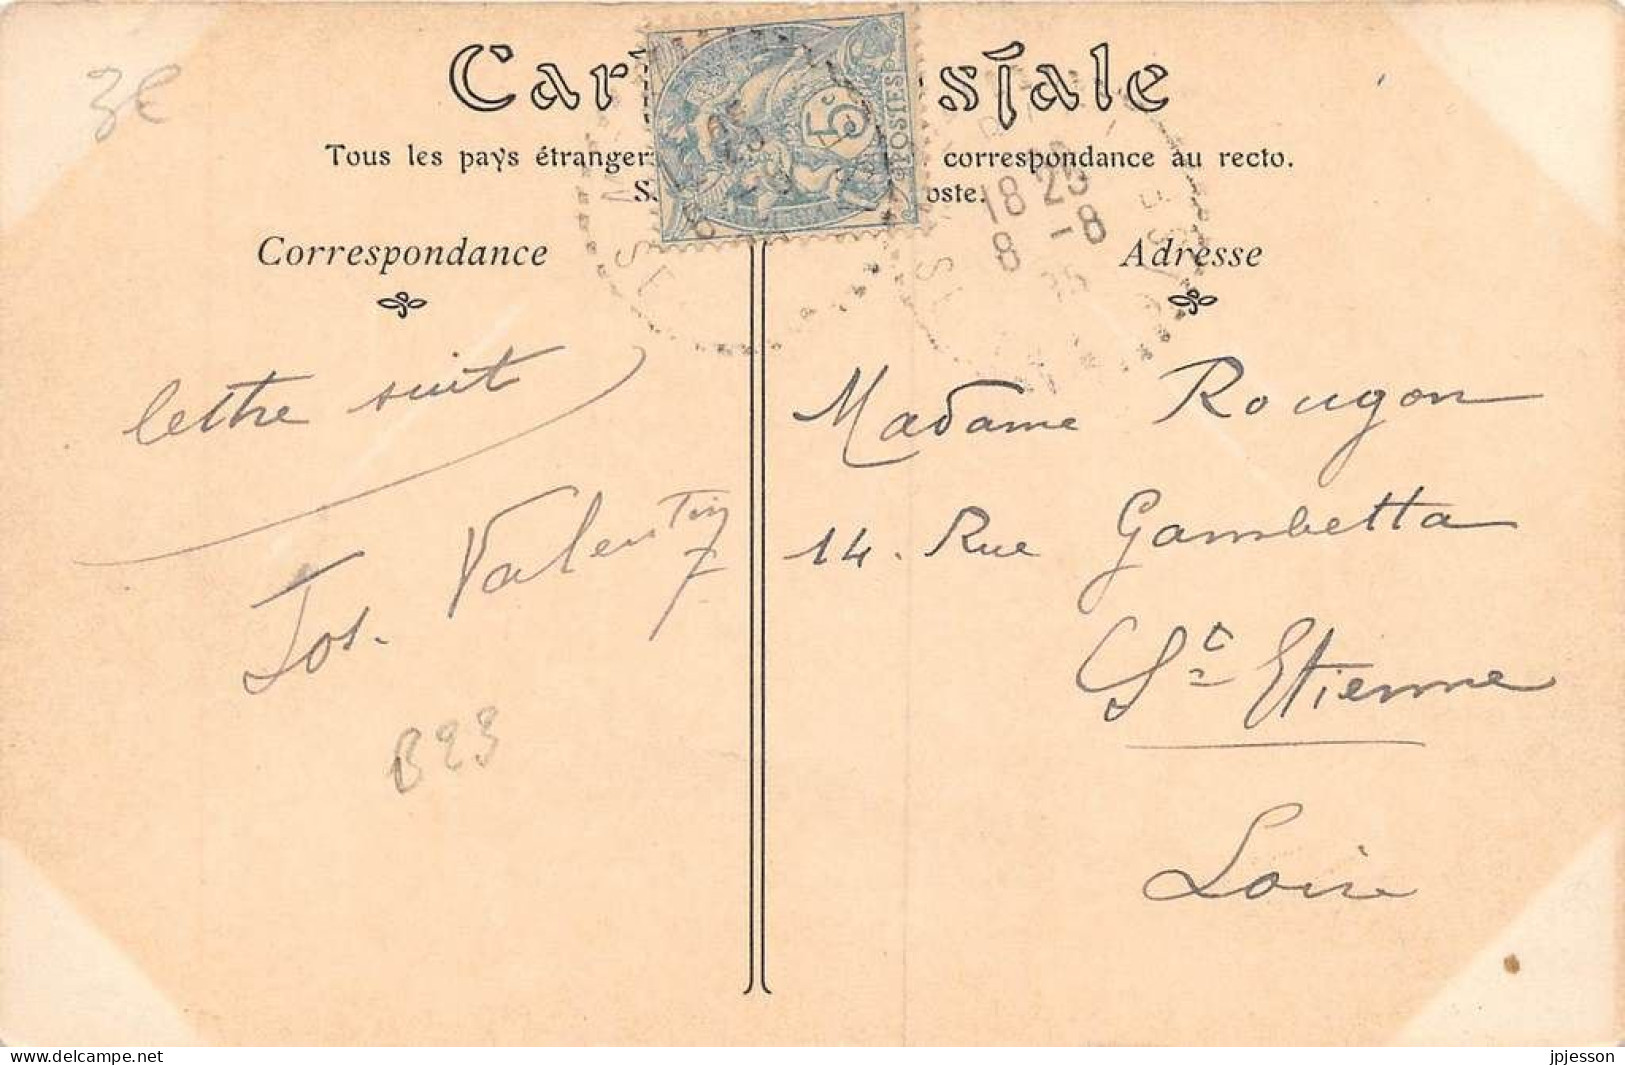 3€
Car sjale
Tous les pays étranger correspondance au recto.
S oste.
5c
POSTES
18 25
8 -8
Correspondance
Adresse
lettre suit
Jos. Valentin
B23
Madame Rougon
14. Rue Gambetta
St Etienne
Loire
Website: www.delcampe.net
jpjesson